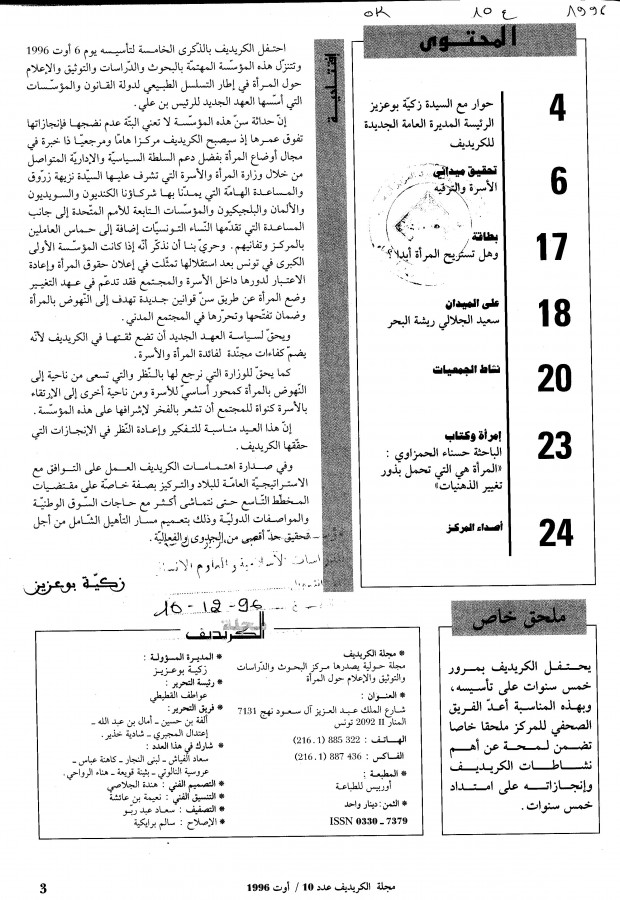 OK 10 ع 1996
المحتوى
4
حوار مع السيدة زكيّة بوعزيز
الرئيسة المديرة العامة الجديدة
للكريديف
6
تحقيق ميداني
الأسرة والترفيه
17
بطاقة
وهل تستريح المرأة أبدا ؟
18
على الميدان
سعيد الجلالي ريشة البحر
20
نشاط الجمعيات
23
إمرأة وكتاب
الباحثة حسناء الحمزاوي :
«المرأة هي التي تحمل بذور
تغيير الذهنيات»
24
أصداء المركز
إفتتاحية
احتفل الكريديف بالذكرى الخامسة لتأسيسه يوم 6 أوت 1996
وتتنزل هذه المؤسّسة المهتمّة بالبحوث والدّراسات والتوثيق والإعلام
حول المرأة في إطار التسلسل الطبيعي لدولة القانون والمؤسّسات
التي أسسها العهد الجديد للرئيس بن علي.
إنّ حداثة سنّ هذه المؤسسة لا تعني البتّة عدم نضجها فإنجازاتها
تفوق عمرها إذ سيصبح الكريديف مركزا هامّا ومرجعيّا ذا خبرة في
مجال أوضاع المرأة بفضل دعم السلطة السياسيّة والإداريّة المتواصل
من خلال وزارة المرأة والأسرة التي تشرف عليها السيّدة نزيهة زرّوق
والمساعدة الهامّة التي يمدّنا بها شركاؤنا الكنديون والسويديون
والألمان والبلجيكيون والمؤسّسات التابعة للأمم المتّحدة إلى جانب
المساعدة التي تقدّمها النّساء التونسيّات إضافة إلى حماس العاملين
بالمركز وتفانيهم. وحريّ بنا أن نذكّر أنّه إذا كانت المؤسسة الأولى
الكبرى في تونس بعد استقلالها تمثّلت في إعلان حقوق المرأة وإعادة
الاعتبار لدورها داخل الأسرة والمجتمع فقد تدعّم في عهد التغيير
وضع المرأة عن طريق سنّ قوانين جديدة تهدف إلى النّهوض بالمرأة
وضمان تفتّحها وتحرّرها في المجتمع المدني.
ويحقّ لسياسة العهد الجديد أن تضع ثقتها في الكريديف لأنّه
يضمّ كفاءات مجنّدة لفائدة المرأة والأسرة.
كما يحقّ للوزارة التي نرجع لها بالنّظر والتي تسعى من ناحية إلى
النّهوض بالمرأة كمحور أساسيّ للأسرة ومن ناحية أخرى إلى الإرتقاء
بالأسرة كنواة للمجتمع أن تشعر بالفخر لإشرافها على هذه المؤسّسة.
إنّ هذا العيد مناسبة للتفكير وإعادة النّظر في الإنجازات التي
حقّقها الكريديف.
وفي صدارة اهتمامات الكريديف العمل على التوافق مع
الاستراتيجيّة العامّة للبلاد والتركيز بصفة خاصّة على مقتضيات
المخطّط التّاسع حتى نتماشى أكثر مع حاجات السوق الوطنيّة
والمواصفات الدوليّة وذلك بتعميم مسار التأهيل الشّامل من أجل
تحقيق حدّ أقصى من الجدوى والفعاليّة.
زكيّة بوعزيز
10-12-96
ملحق خاص
يحتفل الكريديف بمرور
خمس سنوات على تأسيسه،
وبهذه المناسبة أعدّ الفريق
الصحفي للمركز ملحقا خاصا
تضمن لمحة عن أهم
نشاطات الكريديف
وإنجازاته على امتداد
خمس سنوات.
مجلة الكريديف
* مجلة الكريديف
مجلة حولية يصدرها مركز البحوث والدّراسات
والتوثيق والإعلام حول المرأة
* العنوان :
شارع الملك عبد العزيز آل سعود نهج 7131
المنار II 2092 تونس
الهاتف : 322 885 (1 .216)
* الفاكس : 436 887 (1 .216)
* المطبعة :
أوربيس للطباعة
* الثمن: دينار واحد
ISSN 0330 - 7379
* المديرة المسؤولة :
زكية بوعزيز
* رئيسة التحرير :
عواطف القطيطي
* فريق التحرير :
ألفة بن حسين ـ أمال بن عبد الله ـ
إعتدال المجبري ـ شادية خذير.
* شارك في هذا العدد :
سعاد الفياش ـ لبنى النجار ـ كاهنة عباس ـ
عروسية النالوتي ـ بثينة قويعة ـ هناء الرواحي.
* التصميم الفني : هندة الجلاصي
* التنسيق الفني : نعيمة بن عائشة
* التصفيف : سعاد عبد ربو
* الإصلاح : سالم برايكية
مجلة الكريديف عدد 10 / أوت 1996
3